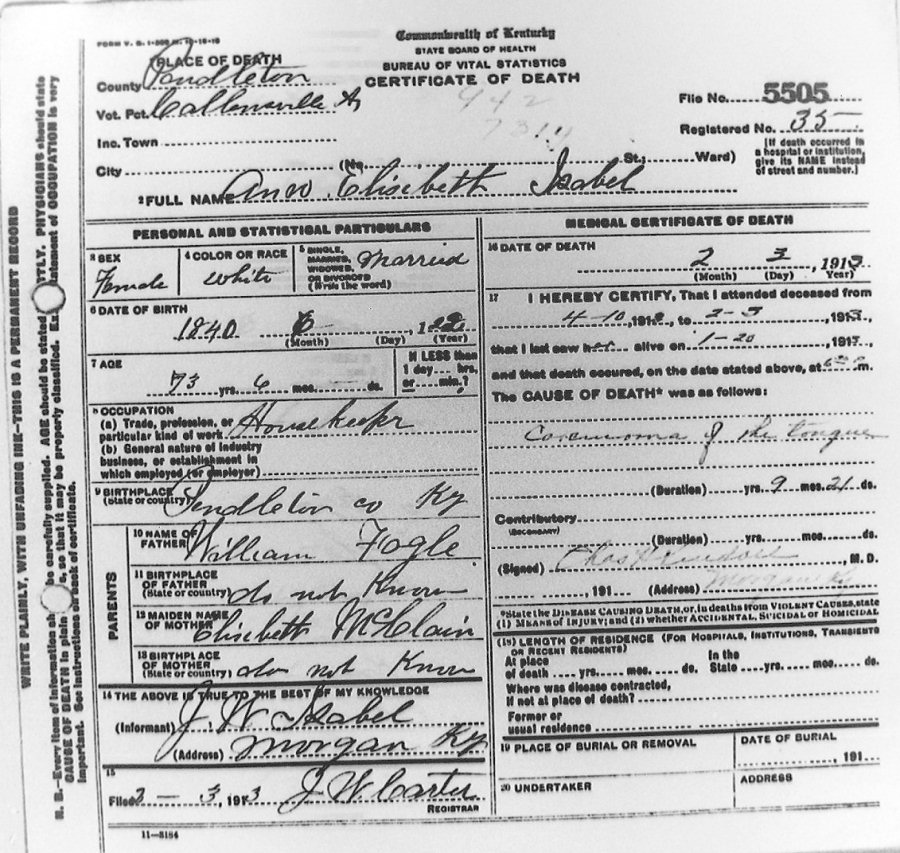 FORM V. S. 1-
Commonwealth of Kentucky
STATE BOARD OF HEALTH
BUREAU OF VITAL STATISTICS
CERTIFICATE OF DEATH
PLACE OF DEATH
County Pendleton
Vot. Pct. Callensville
Inc. Town
City (No. St., Ward)
942
File No. 5505
Registered No. 35
[If death occurred in
a hospital or institution,
give its NAME instead
of street and number.]
2 FULL NAME Ann Elisibeth Isabel
PERSONAL AND STATISTICAL PARTICULARS
3 SEX
Female
4 COLOR OR RACE
white
5 SINGLE,
MARRIED,
WIDOWED,
OR DIVORCED
(Write the word)
Married
6 DATE OF BIRTH
1840 6 , 1
(Month) (Day) (Year)
7 AGE
73 yrs. 6 mos. — ds.
If LESS than
1 day hrs.
or min.?
8 OCCUPATION
(a) Trade, profession, or
particular kind of work Housekeeper
(b) General nature of industry
business, or establishment in
which employed (or employer)
9 BIRTHPLACE
(State or country) Pendleton co Ky
PARENTS
10 NAME OF
FATHER William Fogle
11 BIRTHPLACE
OF FATHER
(State or country) do not Know
12 MAIDEN NAME
OF MOTHER Elisibeth McClain
13 BIRTHPLACE
OF MOTHER
(State or country) do not Know
14 THE ABOVE IS TRUE TO THE BEST OF MY KNOWLEDGE
(Informant) J. W. Isabel
(Address) Morgan Ky
15
Filed 2 — 3, 1913 J W Carter
REGISTRAR
11—3184
MEDICAL CERTIFICATE OF DEATH
16 DATE OF DEATH
2 3 , 1913
(Month) (Day) Year)
17 I HEREBY CERTIFY, That I attended deceased from
4-10, 191 , to 2-3 , 1913,
that I last saw her alive on 1-20 , 191 ,
and that death occured, on the date stated above, at m.
The CAUSE OF DEATH* was as follows:
Carcinoma of the tongue
(Duration) yrs. 9 mos. 21 ds.
Contributory
(SECONDARY)
(Duration) yrs. mos. ds.
(Signed) Chas , M. D.
, 191 (Address) Morgan Ky
*State the DISEASE CAUSING DEATH, or, in deaths from VIOLENT CAUSES, state
(1) MEANS OF INJURY; and (2) whether ACCIDENTAL, SUICIDAL or HOMICIDAL
(18) LENGTH OF RESIDENCE (FOR HOSPITALS, INSTITUTIONS, TRANSIENTS
OR RECENT RESIDENTS)
At place In the
of death yrs. mos. ds. State yrs. mos. ds.
Where was disease contracted,
if not at place of death?
Former or
usual residence
19 PLACE OF BURIAL OR REMOVAL
DATE OF BURIAL
, 191
20 UNDERTAKER
ADDRESS
WRITE PLAINLY, WITH UNFADING INK—THIS IS A PERMANENT RECORD
N. B.—Every item of information be carefully supplied. AGE should be stated PHYSICIANS should state
CAUSE OF DEATH in plain so that it may be properly classified. statement of OCCUPATION is very
important. See instructions on back of certificate.